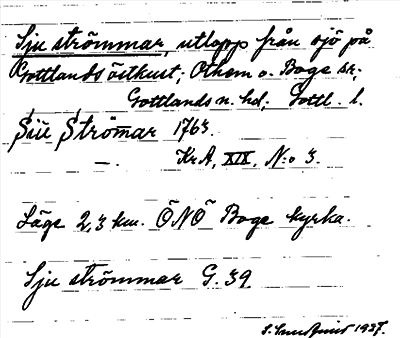 Sju strömmar, utlopp från sjö på
Gottlands östkust; Othem o. Boge sr;
Gottlands n. hd; Gottl. l.
Siu Strömar 1763.
—. KrA, XIX, N:o 3.
Läge 2,3 km. ÖNÖ Boge kyrka.
Sju strömmar G. 39
1937.